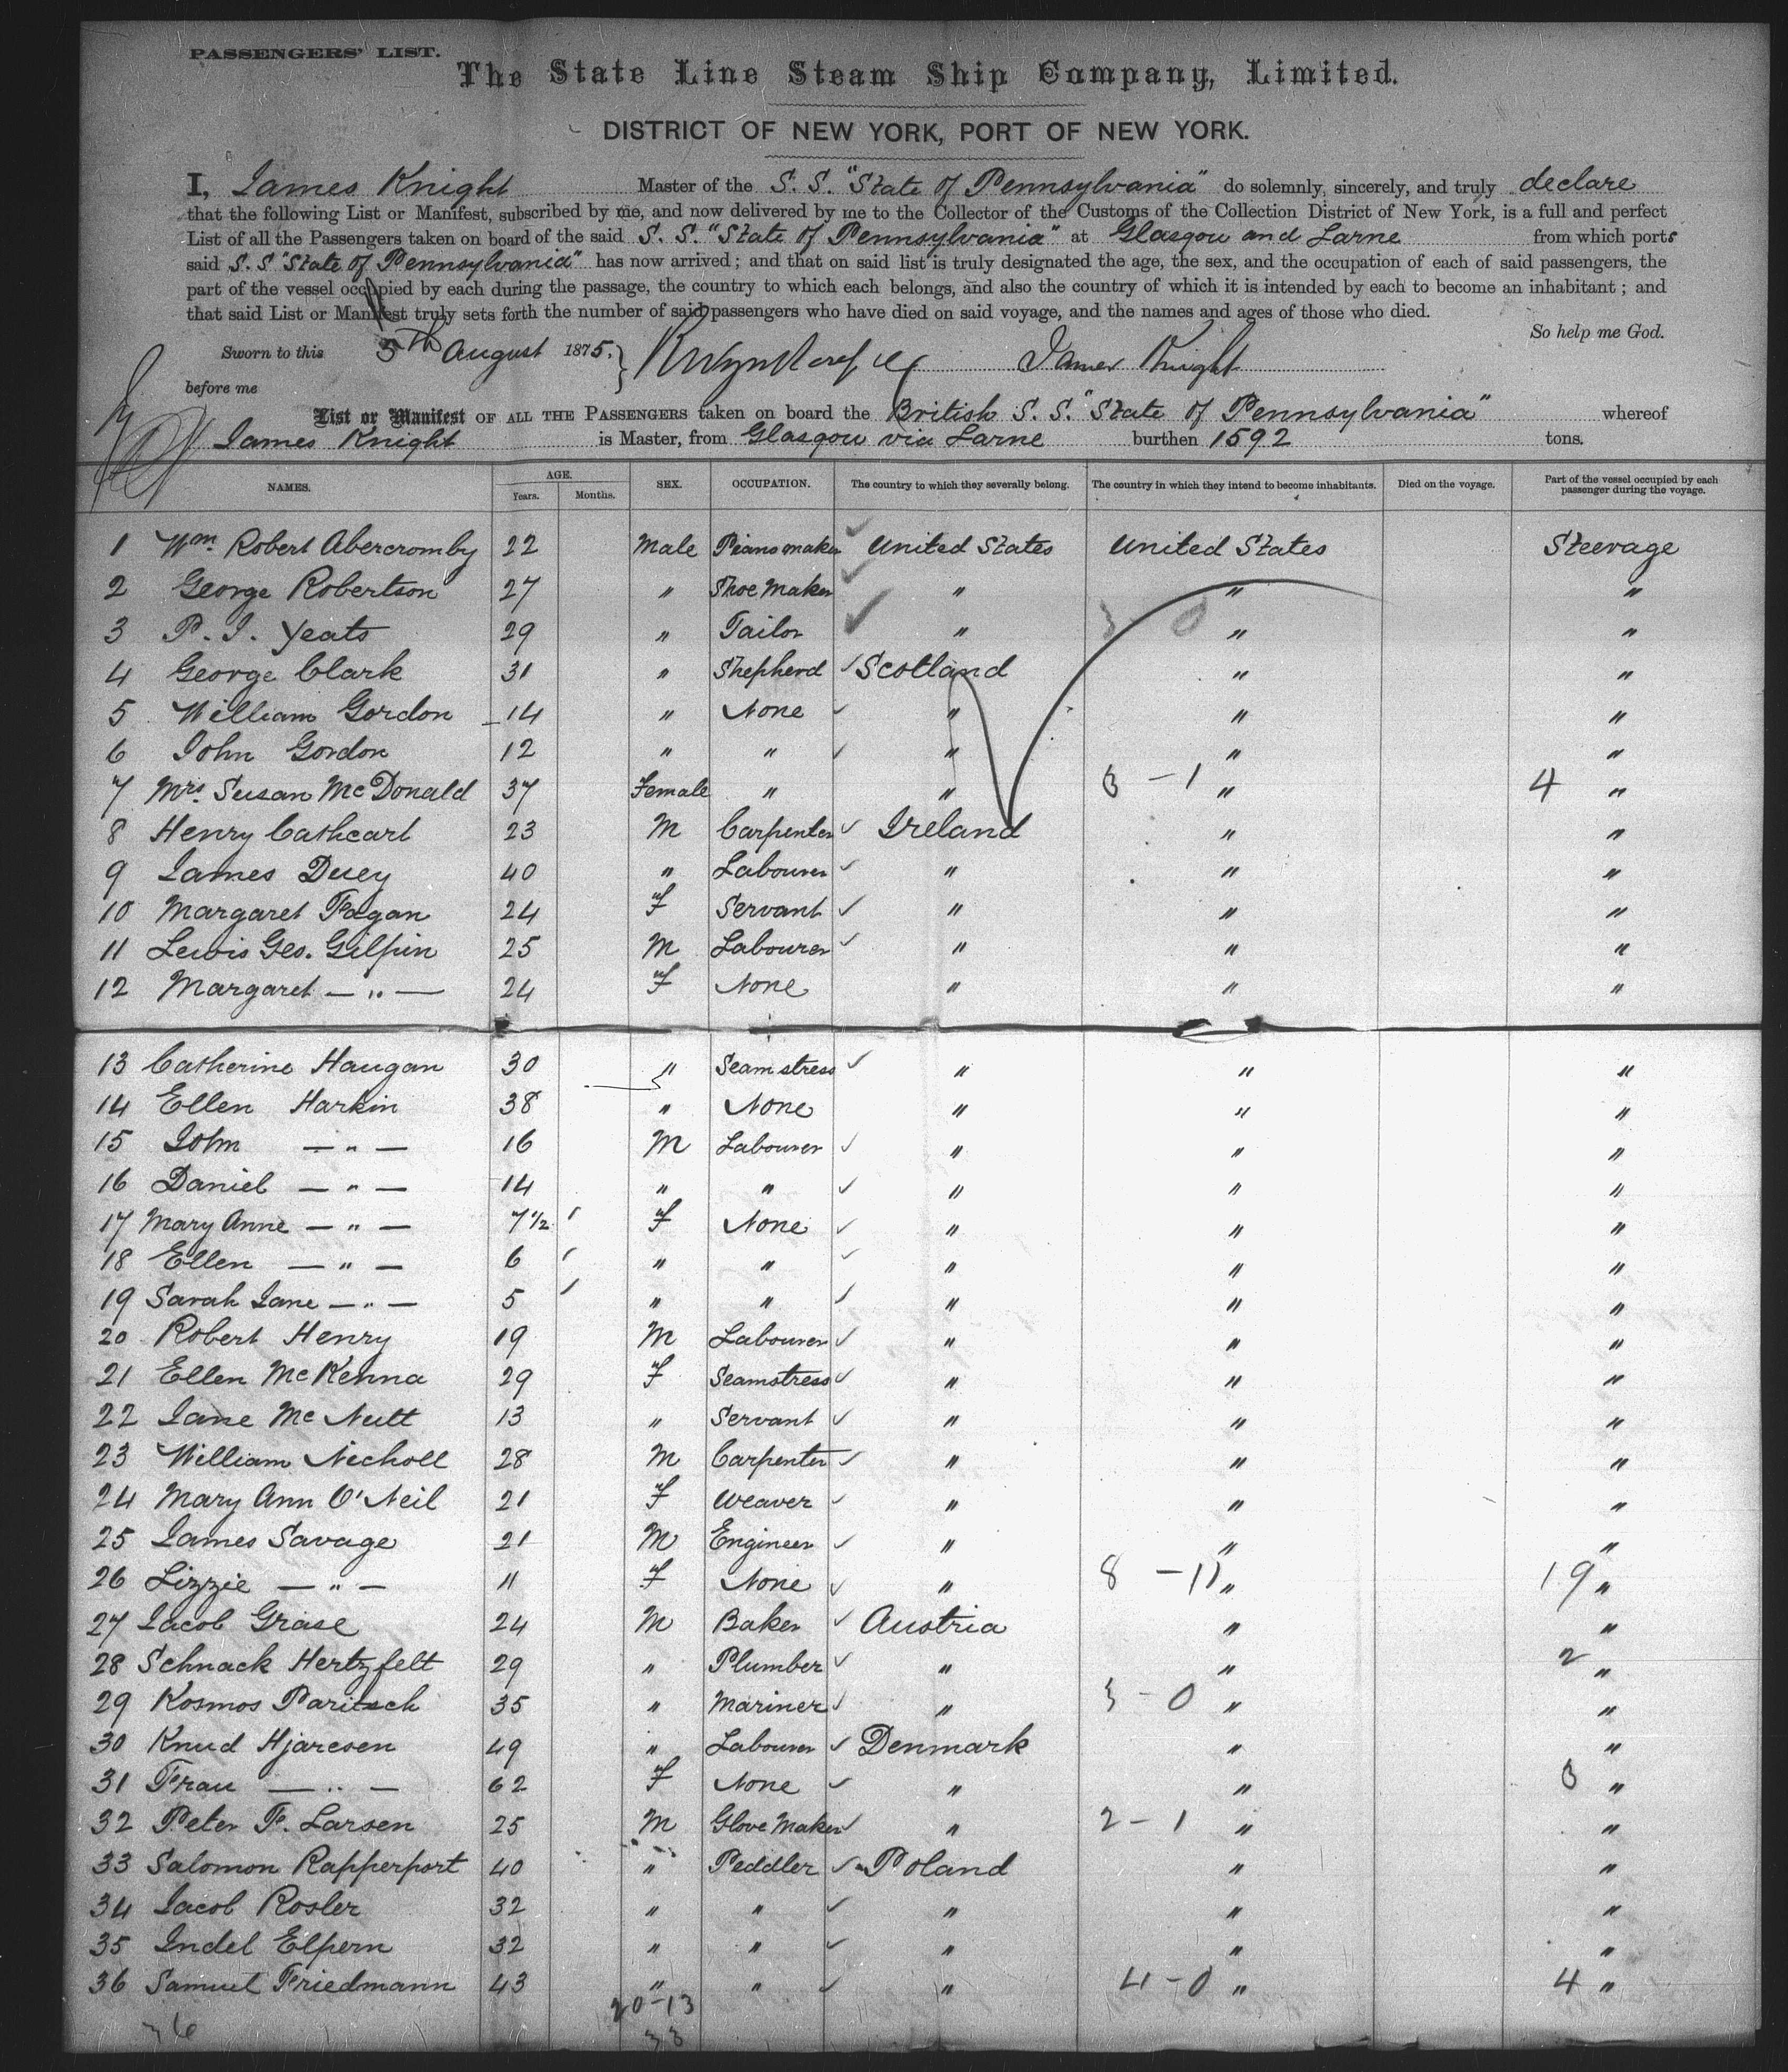 PASSENGERS' LIST.
The State Line Steam Ship Company, Limited.
DISTRICT OF NEW YORK, PORT OF NEW YORK.
I, James Knight Master of the S. S. "State of Pennsylvania" do solemnly, sincerely, and truly declare
that the following List or Manifest, subscribed by me, and now delivered by me to the Collector of the Customs of the Collection District of New York, is a full and perfect
List of all the Passengers taken on board of the said S. S. "State of Pennsylvania" at Glasgow and Larne from which ports
said S. S "State of Pennsylvania" has now arrived; and that on said list is truly designated the age, the sex, and the occupation of each of said passengers, the
part of the vessel occupied by each during the passage, the country to which each belongs, and also the country of which it is intended by each to become an inhabitant; and
that said List or Manifest truly sets forth the number of said passengers who have died on said voyage, and the names and ages of those who died.
So help me God.
Sworn to this 5th August 1875. James Knight
before me
List or Manifest OF ALL THE PASSENGERS taken on board the British S. S. "State of Pennsylvania" whereof
James Knight is Master, from Glasgow via Larne burthen 1592 tons.
NAMES. AGE. Years. Months. SEX. OCCUPATION. The country to which they severally belong. The country in which they intend to become inhabitants. Died on the voyage. Part of the vessel occupied by each passenger during the voyage.
1 Wm. Robert Abercromby 22 Male Piano maker United States United States Steerage
2 George Robertson 27 " Shoe Maker " " "
3 P. J. Yeats 29 " Tailor " " "
4 George Clark 31 " Shepherd Scotland " "
5 William Gordon 14 " None " " "
6 John Gordon 12 " " " " "
7 Mrs. Susan McDonald 37 Female " " 3 - 1 " 4 "
8 Henry Cathcart 23 M Carpenter Ireland " "
9 James Duey 40 " Labourer " " "
10 Margaret Fagan 24 F Servant " " "
11 Lewis Geo. Gilpin 25 M Labourer " " "
12 Margaret — " — 24 F None " " "
13 Catherine Haugan 30 " Seamstress " " "
14 Ellen Harkin 38 " None " " "
15 John — " — 16 M Labourer " " "
16 Daniel — " — 14 " " " " "
17 Mary Anne — " — 7 1/2 F None " " "
18 Ellen — " — 6 " " " " "
19 Sarah Jane — " — 5 " " " " "
20 Robert Henry 19 M Labourer " " "
21 Ellen McKenna 29 F Seamstress " " "
22 Jane McNutt 13 " Servant " " "
23 William Nicholl 28 M Carpenter " " "
24 Mary Ann O'Neil 21 F Weaver " " "
25 James Savage 21 M Engineer " " "
26 Lizzie — " — 11 F None " 8 - 11 " 19 "
27 Jacob Grase 24 M Baker Austria " "
28 Schnack Hertzfelt 29 " Plumber " " 2 "
29 Kosmos Paritsch 35 " Mariner " 3 - 0 " "
30 Knud Hjaresen 49 " Labourer Denmark " "
31 Frau — " — 62 F None " " 3 "
32 Peter F. Larsen 25 M Glove Maker " 2 - 1 " "
33 Salomon Rapperport 40 " Peddler Poland " "
34 Jacob Rosler 32 " " " " "
35 Indel Elpern 32 " " " " "
36 Samuel Friedmann 43 " " " 4 - 0 " 4 "
20 - 13
36 33